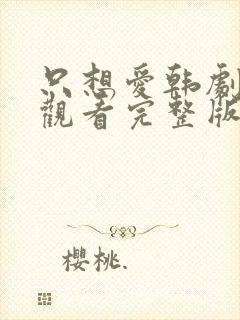 只想愛韩劇
觀看完整版
櫻桃.